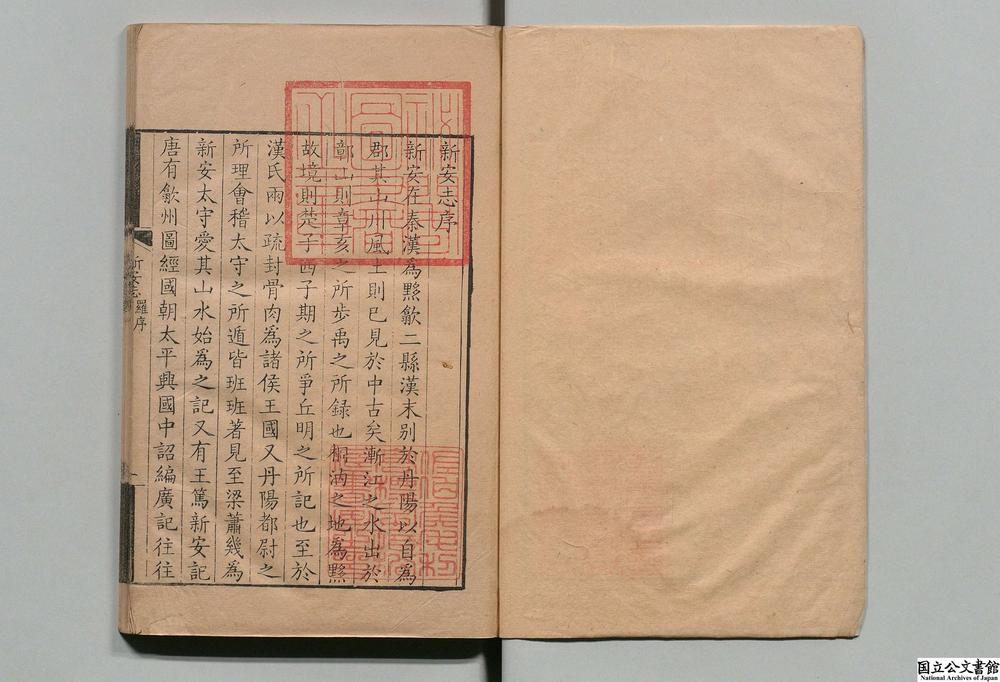 新安志序
新安在秦漢為黟歙二縣漢末別於丹陽以自為
郡其山川風土則已見於中古矣漸江之水出於
鄣山則章亥之所步禹之所録也桐汭之地為黟
故境則楚子西子期之所爭丘明之所記也至於
漢氏兩以疏封骨肉為諸侯王國又丹陽都尉之
所理會稽太守之所遁皆班班著見至梁蕭幾為
新安太守愛其山水始為之記又有王篤新安記
唐有歙州圖經國朝太平興國中詔編廣記往往
新安志
羅序
国立公文書館
National Archives of Japan